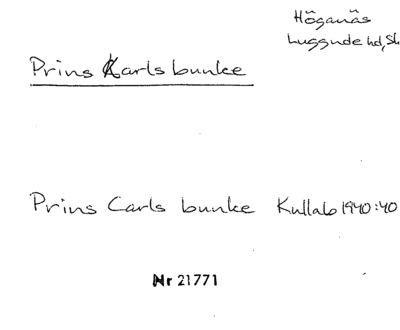 Höganäs
Luggude hd, Sk
Prins Karls bunke
Prins Carls bunke Kullab 1940:40
Nr 21771